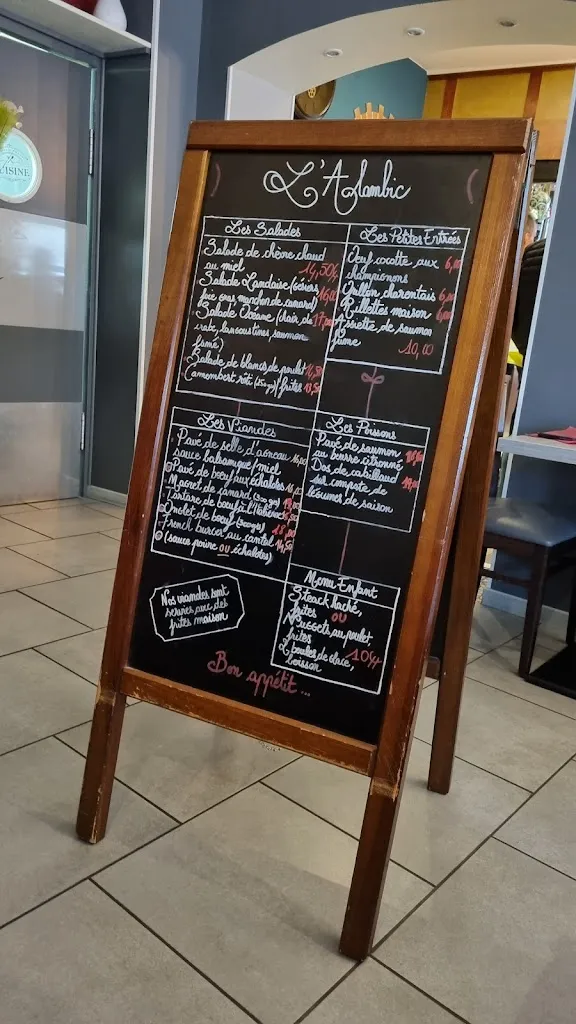 CUISINE
L'Alambic
Les Salades
Salade de chèvre chaud
au miel 14,50€
Salade Landaise (Gésiers
foie gras, manchon de canard)
Salade Océane (chair de 17,00
crabe, langoustines, saumon
fumé)
Salade de blancs de poulet 16,50
Camembert rôti (250 gr)/frites 13,50
Les Petites Entrées
Oeuf cocotte aux
champignons
Grillon charentais
Rillettes maison
Assiette de saumon
fumé 10,00
Les Viandes
Pavé de selle d'agneau
sauce balsamique/miel
Pavé de bœuf aux échalotes
Magret de canard (300gr)
Tartare de bœuf à l'Italienne
Onglet de bœuf (200gr)
French burger au cantal 14,50
(sauce poivre ou échalotes)
Les Poissons
Pavé de saumon
au beurre citronné
Dos de cabillaud
sur compotée de
légumes de saison
Nos viandes sont
servies avec des
frites maison
Menu Enfant
Steack haché,
frites OU
Nuggets au poulet
frites
2 boules de glace, 10€
boisson
Bon appétit...